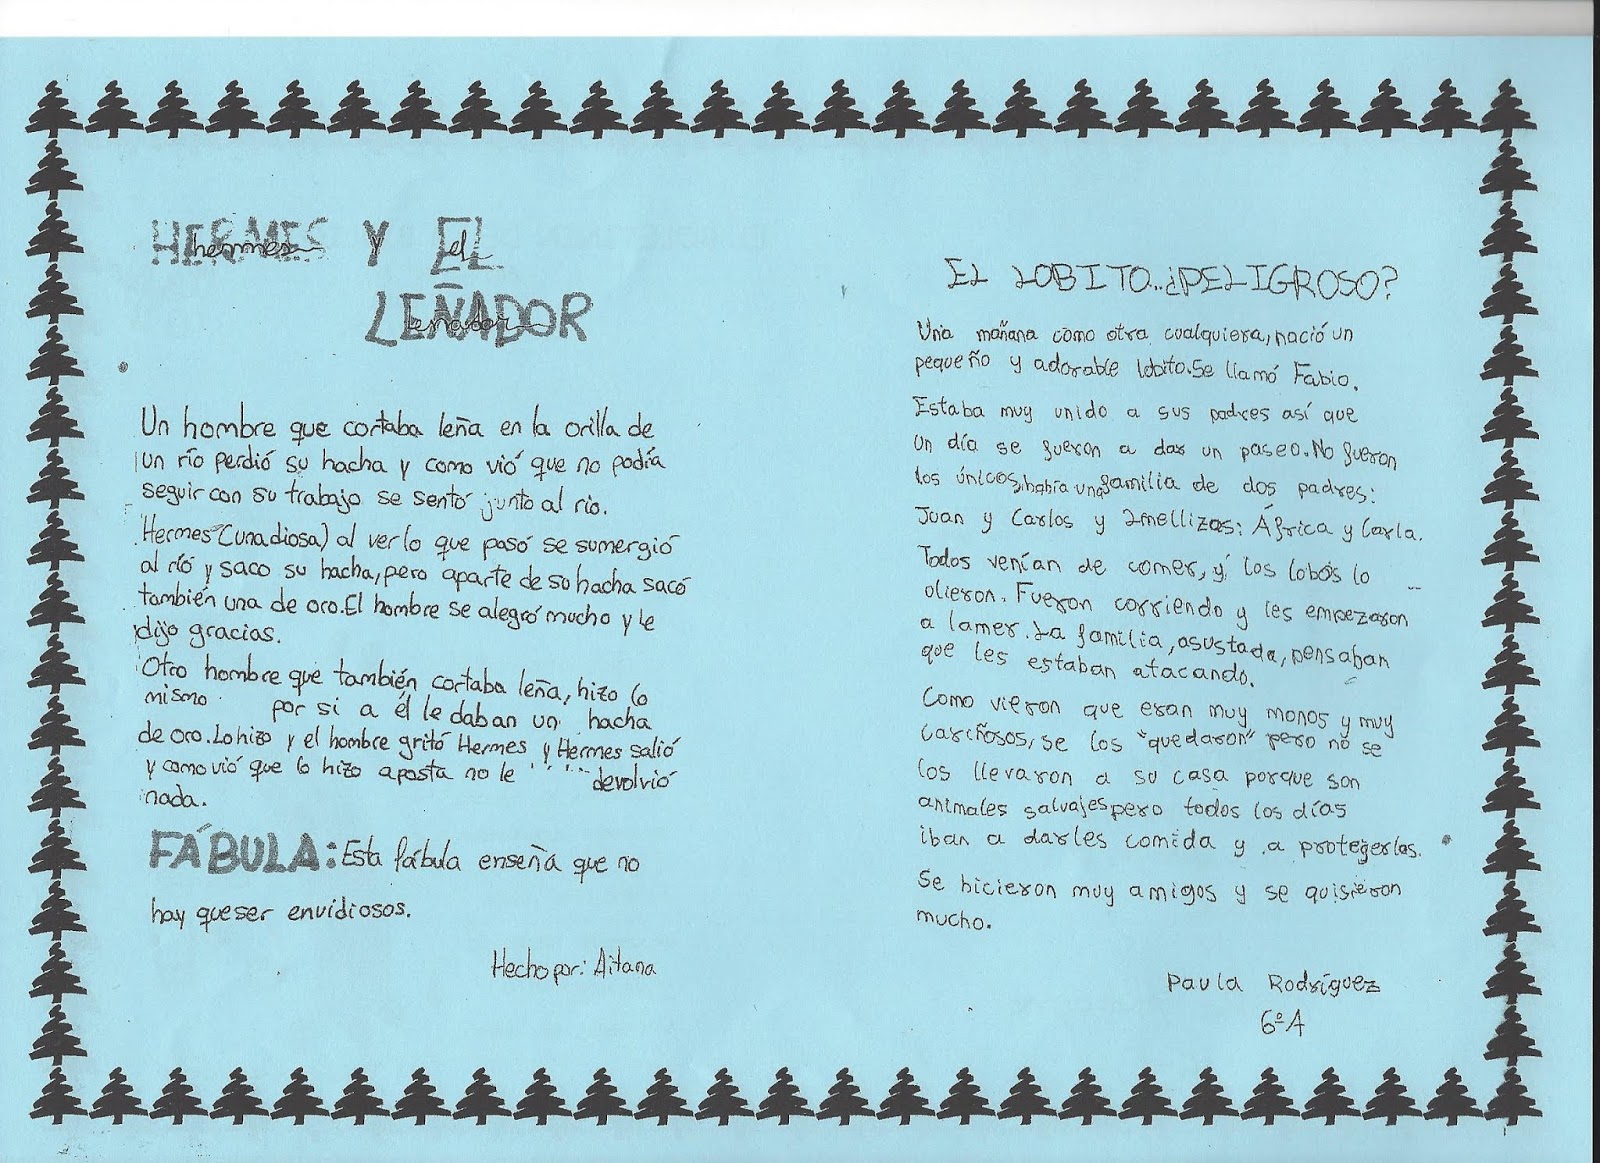 HERMES Y EL
hermes el
LEÑADOR
leñador
Un hombre que cortaba leña en la orilla de
un río perdió su hacha y como vió que no podía
seguir con su trabajo se sentó junto al rio.
Hermes (una diosa) al ver lo que pasó se sumergió
al río y saco su hacha, pero aparte de su hacha sacó
también una de oro. El hombre se alegró mucho y le
dijo gracias.
Otro hombre que también cortaba leña, hizo lo
mismo por si a él le daban un hacha
de oro. Lo hizo y el hombre gritó Hermes y Hermes salió
y como vió que lo hizo aposta no le devolvió
nada.
FÁBULA: Esta fábula enseña que no
hay que ser envidiosos.
Hecho por: Aitana
EL LOBITO..¿PELIGROSO?
Una mañana como otra cualquiera, nació un
pequeño y adorable lobito. Se llamó Fabio.
Estaba muy unido a sus padres así que
un día se fueron a dar un paseo. No fueron
los únicos, había una familia de dos padres:
Juan y Carlos y 2 mellizas: África y Carla.
Todos venían de comer, y los lobos lo
olieron. Fueron corriendo y les empezaron
a lamer. La familia, asustada, pensaban
que les estaban atacando.
Como vieron que eran muy monos y muy
cariñosos, se los "quedaron" pero no se
los llevaron a su casa porque son
animales salvajes pero todos los días
iban a darles comida y a protegerlas.
Se hicieron muy amigos y se quisieron
mucho.
Paula Rodríguez
6º A